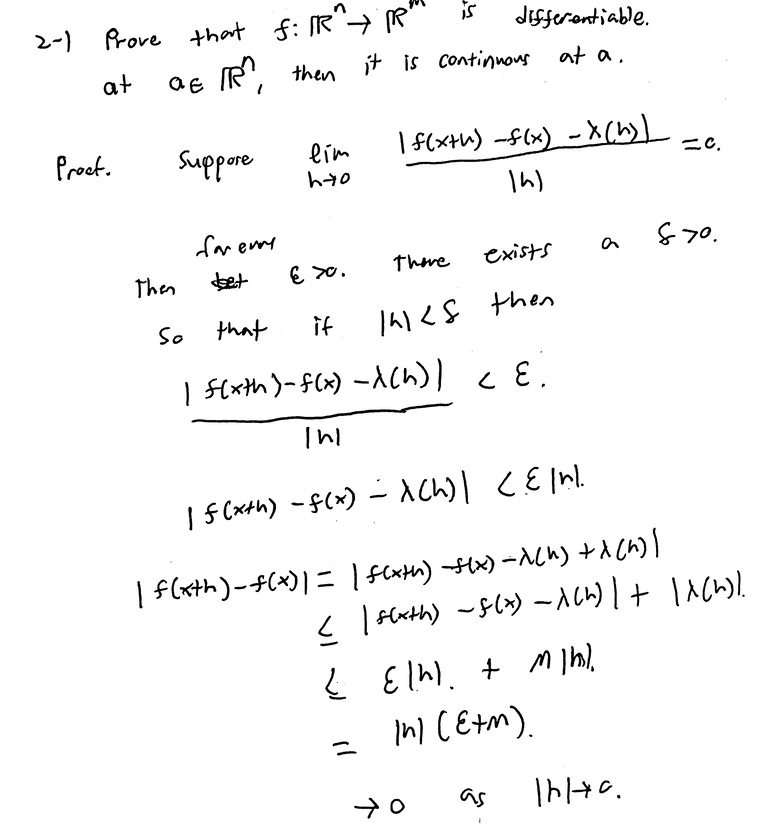 2-1 Prove that f: ℝⁿ → ℝᵐ is differentiable.
at a ∈ ℝⁿ, then it is continuous at a.
Proof. Suppose lim h→0 |f(x+h) - f(x) - λ(h)| / |h| = 0.
for every
Then ε > 0. There exists a δ > 0.
So that if |h| < δ then
|f(x+h) - f(x) - λ(h)| / |h| < ε.
|f(x+h) - f(x) - λ(h)| < ε|h|.
|f(x+h) - f(x)| = |f(x+h) - f(x) - λ(h) + λ(h)|
≤ |f(x+h) - f(x) - λ(h)| + |λ(h)|.
≤ ε|h|. + M|h|.
= |h| (ε+M).
→ 0 as |h| → 0.